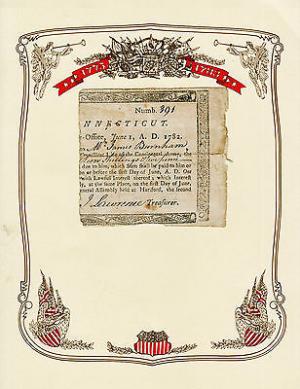 1775 1783
Numb. 391
NNECTICUT.
-Office, June 1, A. D. 1782.
Mr James Burnham,
Line of the Continental Army, the
Shillings
due to him, which Sum shall be paid to him or
or before the first Day of June, A. D. One
with Lawful Interest thereof; which Interest
ly, at the same Place, on the first Day of June,
neral Assembly held at Hartford, the second
J Lawrence Treasurer.